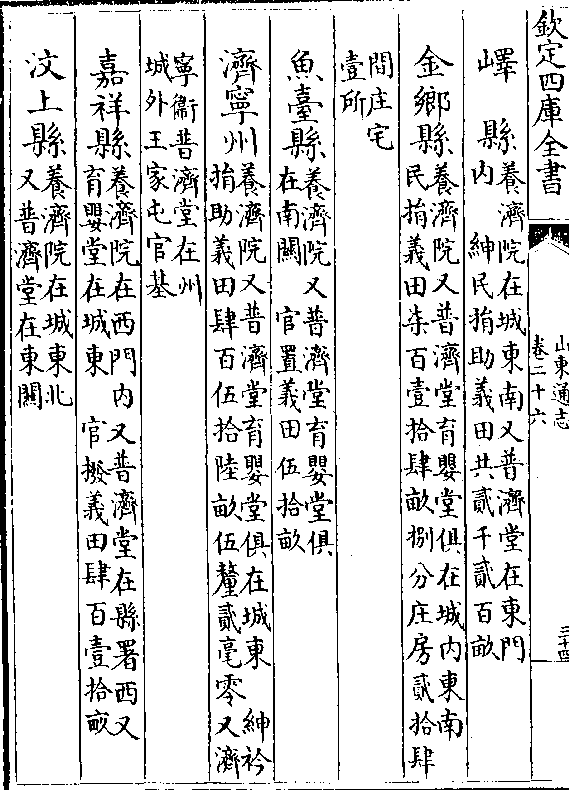 欽定四庫全書
山東通志
卷二十六
三十四
嶧縣養濟院在城東南又普濟堂在東門
內 紳民捐助義田共貳千貳百畝
金鄉縣養濟院又普濟堂育嬰堂俱在城內東南
民捐義田柒百壹拾肆畝捌分庄房貳拾肆
間庄宅
壹所
魚臺縣養濟院又普濟堂育嬰堂俱
在南關 官置義田伍拾畝
濟寧州養濟院又普濟堂育嬰堂俱在城東 紳衿
捐助義田肆百伍拾陸畝伍釐貳毫零又濟
寧衞普濟堂在州
城外王家屯官基
嘉祥縣養濟院在西門內又普濟堂在縣署西又
育嬰堂在城東 官撥義田肆百壹拾畝
汶上縣養濟院在城東北
又普濟堂在東關